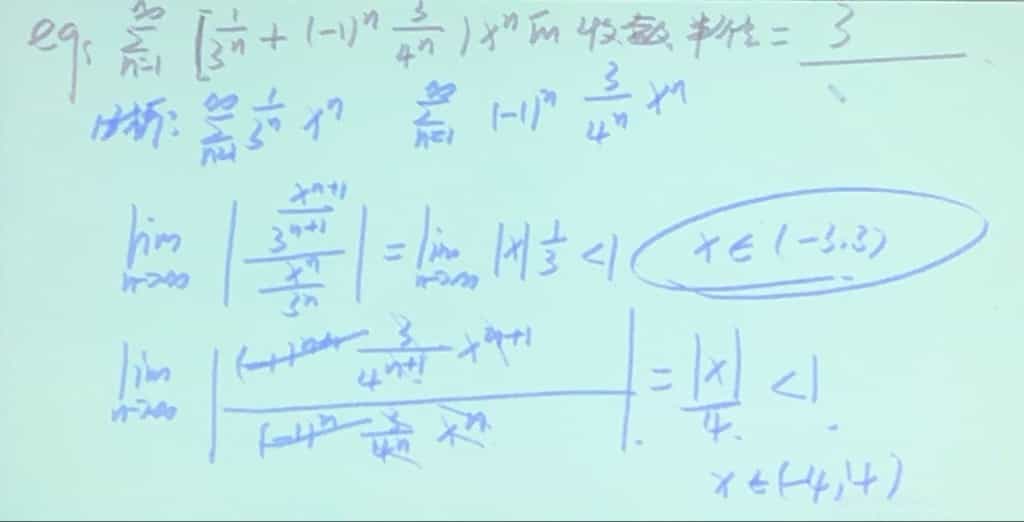 eg: \sum_{n=1}^{\infty} [\frac{1}{3^n} + (-1)^n \frac{3}{4^n}) x^n 的收敛半径 = 3
分析: \sum_{n=1}^{\infty} \frac{1}{3^n} x^n \sum_{n=1}^{\infty} (-1)^n \frac{3}{4^n} x^n
\lim_{n→∞} | \frac{\frac{x^{n+1}}{3^{n+1}}}{\frac{x^n}{3^n}} | = \lim_{n→∞} |x| \frac{1}{3} < 1 x ∈ (-3.3)
\lim_{n→∞} | \frac{(-1)^{n+1} \frac{3}{4^{n+1}} x^{n+1}}{(-1)^n \frac{3}{4^n} x^n} | = \frac{|x|}{4} < 1.
x ∈ (-4,4)